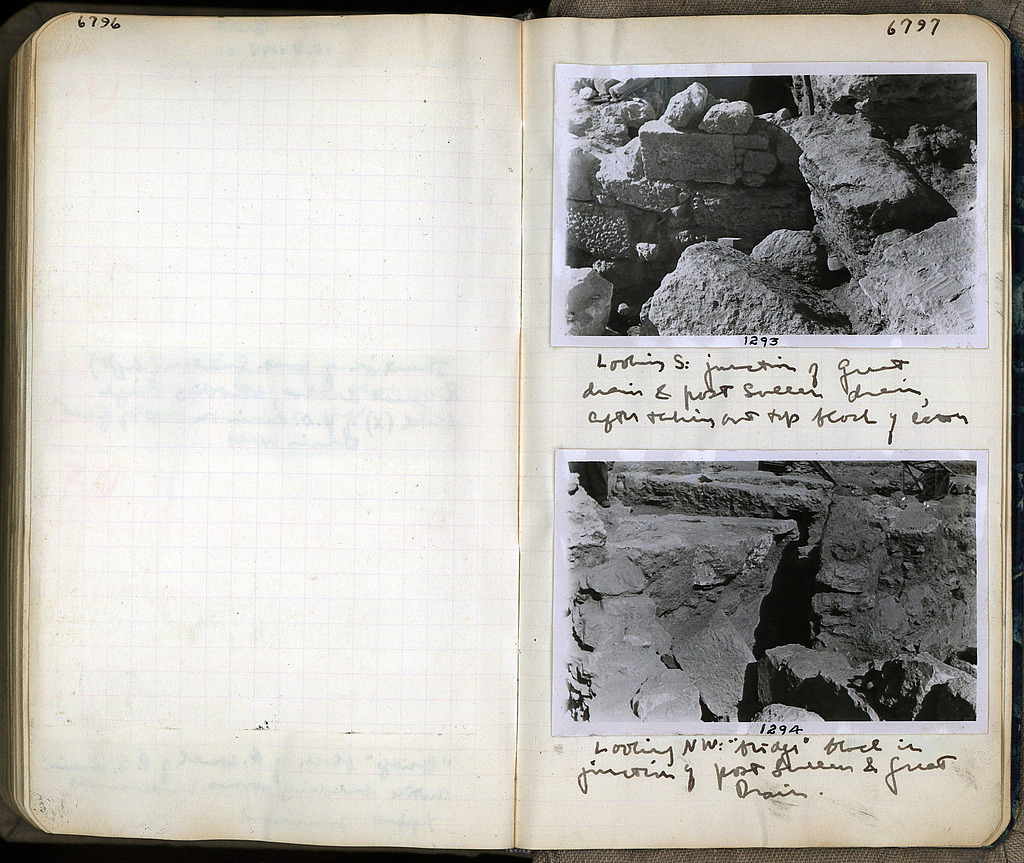 6796
6797
1293
Looking S: junction of Great
drain & post Sullan drain,
after taking out top block of cover
1294
Looking NW: "bridge" block in
junction of post Sullan & Great
Drain.